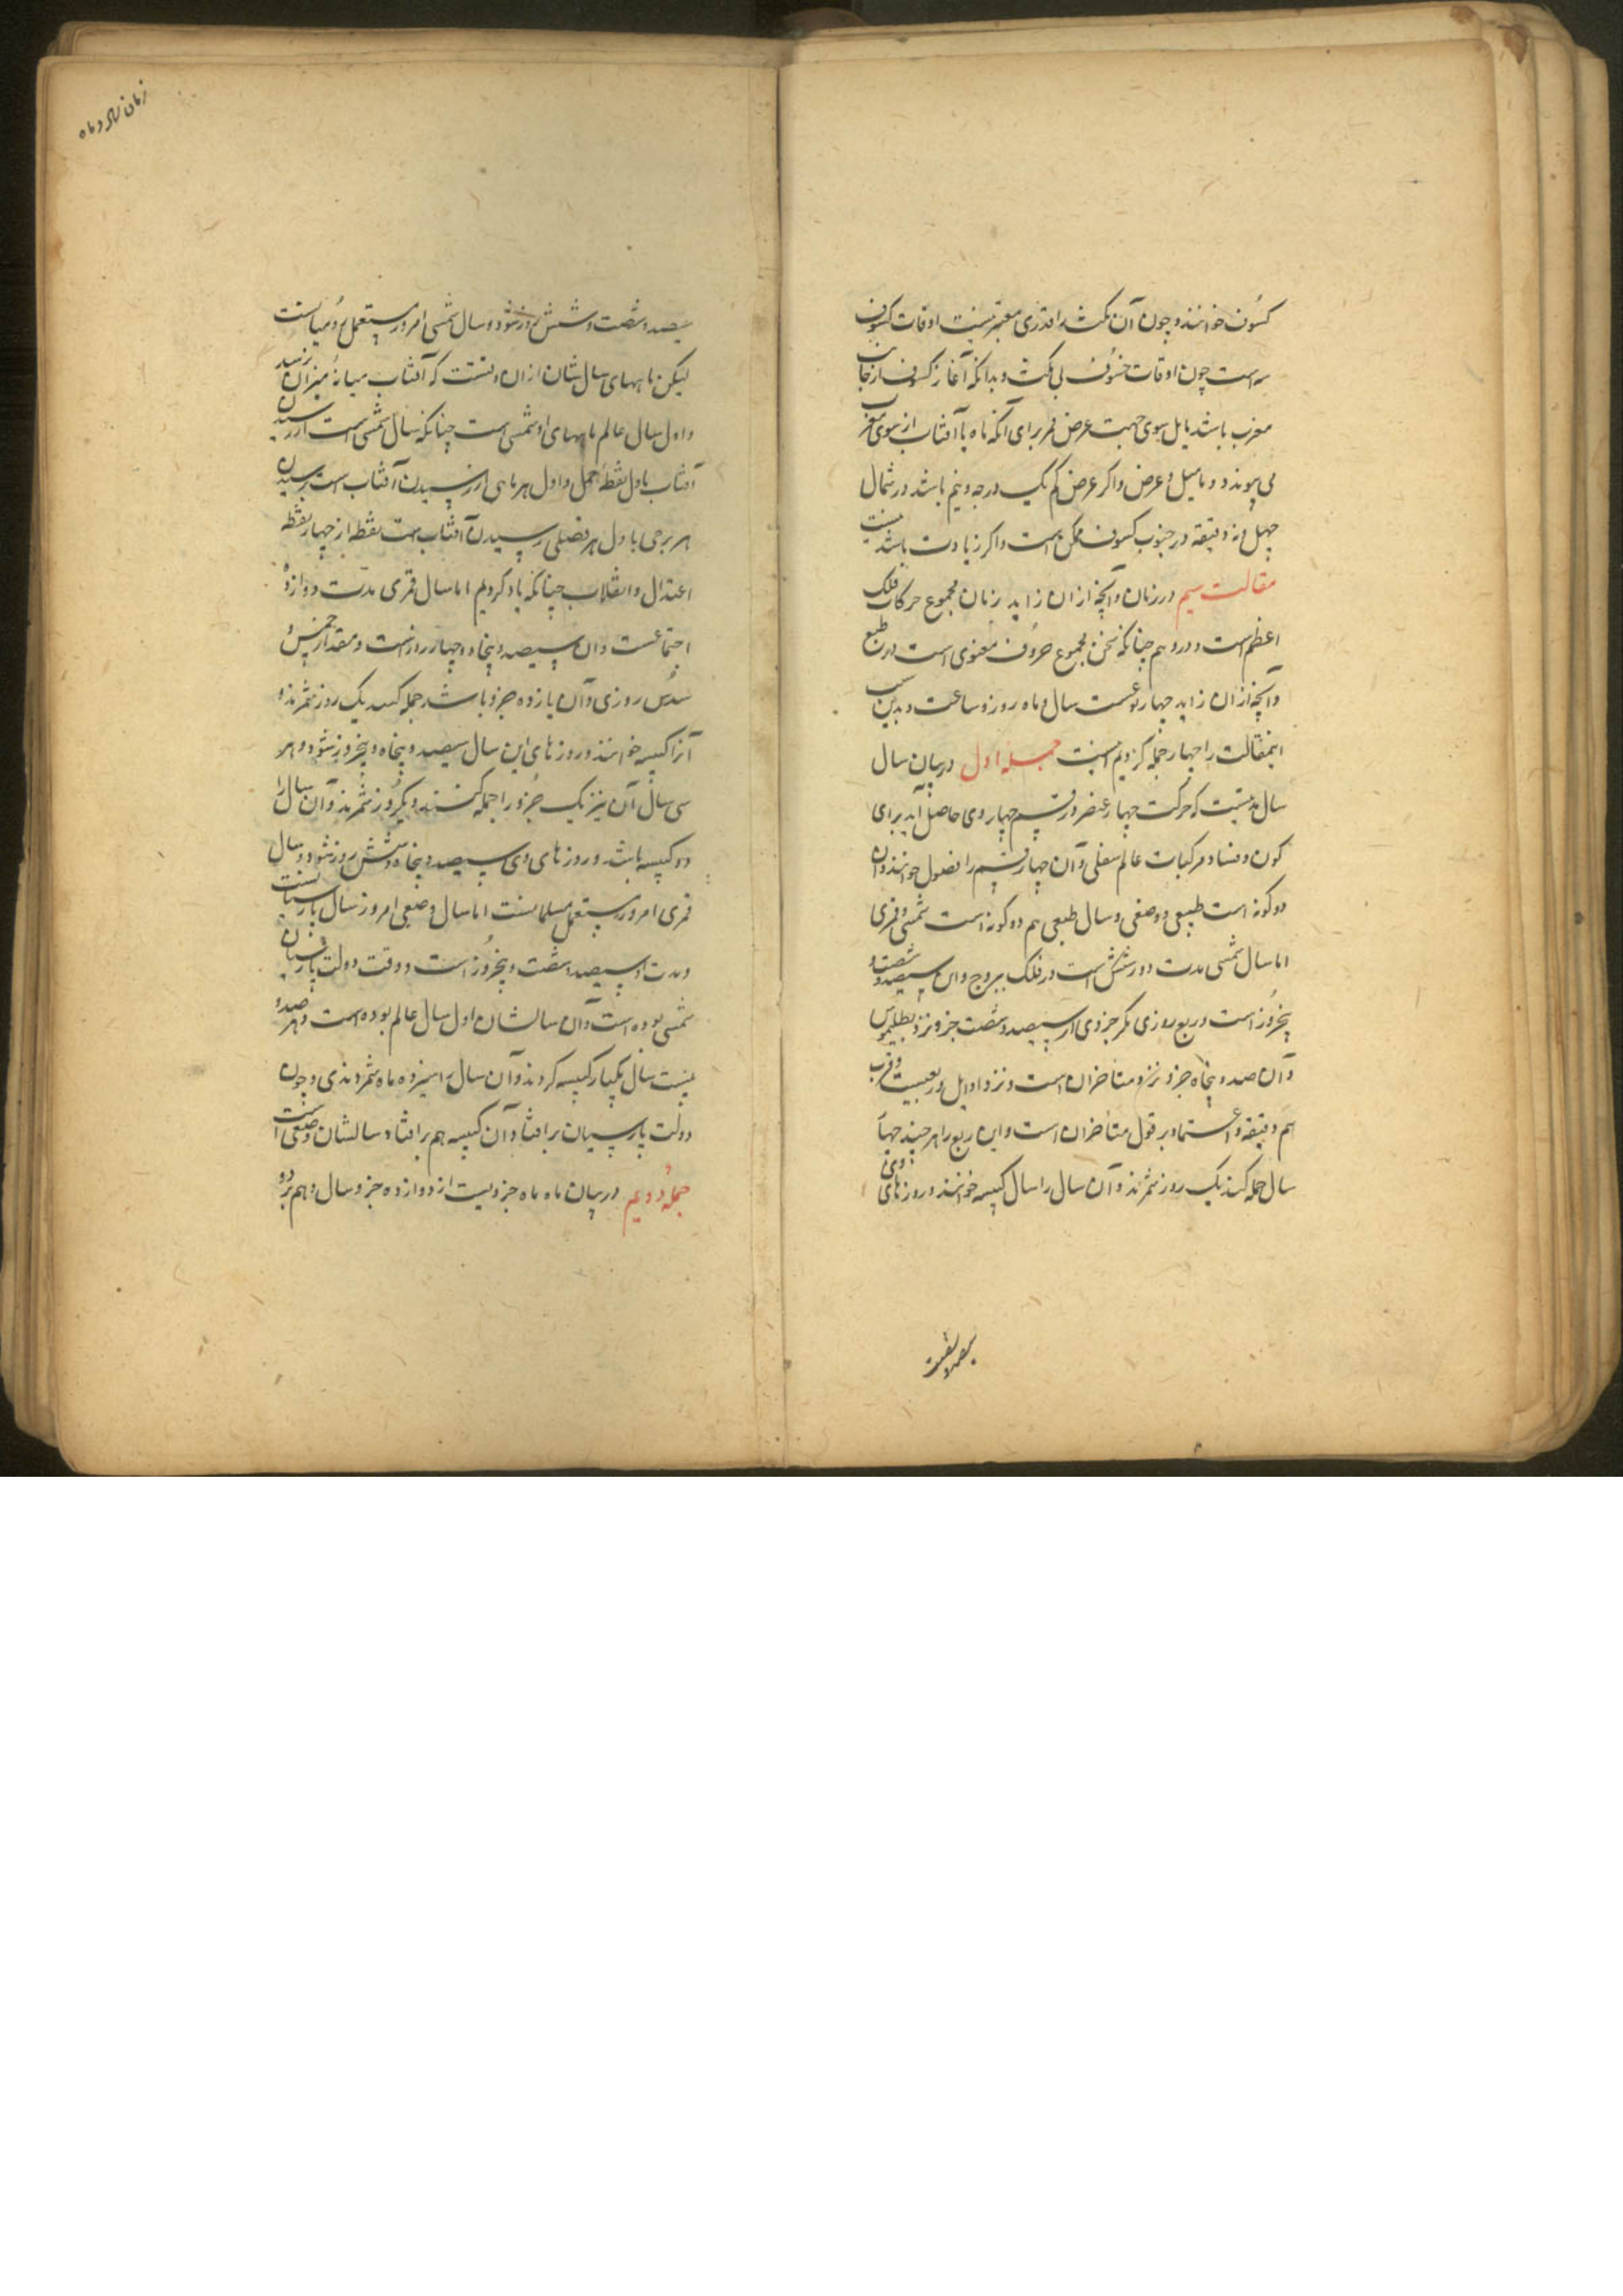 کسوف خوانند و چون آن مکث را قدری معتبر نیست اوقات کسوف
سه است چون اوقات خسوف بی مکث و بدانکه آغاز کسوف از جانب
مغرب باشد مایل بسوی جهت عرض قمر برای آنکه ماه با آفتاب از سوی مغرب
می پیوندد و مامیل و عرض واکر عرض کم یک درجه ونیم باشد در شمال
چهل ونه دقیقه در جنوب کسوف ممکن است واکر زیادت باشد نیست
مقالت سیم در زمان وآنچه ازان زاید زمان مجموع حرکات فلک
اعظم است ودر وهم چنانکه سخن مجموع حروف معنوی است در طبع
وآنچه ازان زاید چهار نوعست سال وماه وروز وساعت و بدین سبب
اینمقالت را چهار جمله کردیم اینست جمله اول در بیان سال
سال مدتیست که حرکت چهار عنصر ورقسم چهار وی حاصل آید برای
کون وفساد مرکبات عالم سفلی وآن چهار قسم را فصول خوانند وآن
دو کونه است طبیعی ووضعی وسال طبعی هم دو کونه است شمسی وقمری
اما سال شمسی مدت دور شمس است در فلک بروج وآن سیصد و شصت و
پنجروز است وربع روزی مکر جزوی از سیصد وشصت جزو نزد بطلیموس
وآن صد وپنجاه جزو نزد متاخران است ونزد اوایل وربعیست وقرب
هم دقیقه واعتماد بر قول متاخران است واین ربع را هر چند چهار
سال جمله کنند یک روز شمرند وآن سال را سال کبیسه خوانند وروزهای وی
سیصد و شصت
زمان سال وماه
سیصد وشصت وشش روز شود وسال شمسی امروز مستعمل رومیانست
لیکن ماههای سال شان ازان دانست که آفتاب میانهٔ میزان رسد
واول سال عالم ماههای او شمسی است چنانکه سال شمسی است از رسیدن
آفتاب باول نقطهٔ حمل واول هر ماهی از رسیدن آفتاب است برسیدن
هر برجی باول هر فصلی رسیدن آفتاب است بنقطه از چهار نقطه
اعتدال وانقلاب چنانکه یاد کردیم اما سال قمری مدت دوازده
اجتماعست وآن سیصد وپنجاه وچهار روزست ومقدار خمس و
سدس روزی وآن یازده جزو باشد جمله کنند یک روز شمرند و
آنرا کبیسه خوانند وروزهای این سال سیصد وپنجاه وپنجروز شود وهر
سی سال آن نیز یک جزو را جمله کنند ویکروز شمرند وآن سال را
دو کبیسه باشد وروزهای وی سیصد وپنجاه وشش روز شود وسال
قمری امروز مستعمل مسلمانست اما سال وضعی امروز سال پارسیانست
ومدت او سیصد وشصت وپنجروز است ووقت دولت پارسیان
شمسی بوده است وآن سالشان اول سال عالم بوده است وهر صد و
بیست سال یکبار کبیسه کردند وآن سال را سیزده ماه شمردندی وچون
دولت پارسیان بر افتاد وآن کبیسه هم بر افتاد وسالشان وضعی است
جمله دویم در بیان ماه ماه جزویست از دوازده جزو سال وهم بر دو